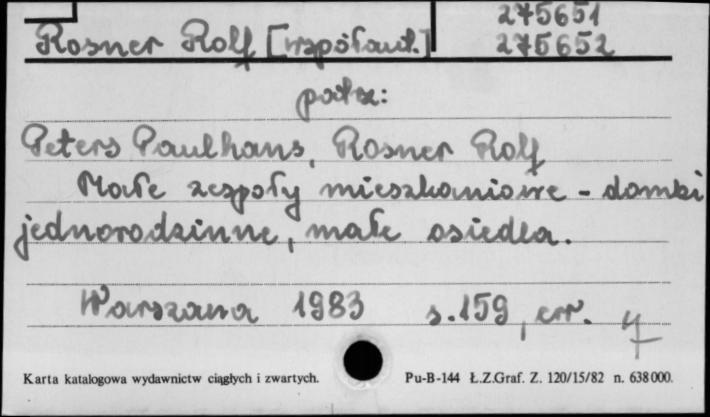 275651
Rosner Rolf [współaut.] 275652
patrz:
Peters Paulhans, Rosner Rolf
Małe zespoły mieszkaniowe - domki
jednorodzinne, małe osiedla.
Warszawa 1983 s. 159, err.
Karta katalogowa wydawnictw ciągłych i zwartych. Pu-B-144 Ł.Z.Graf. Z. 120/15/82 n. 638000.